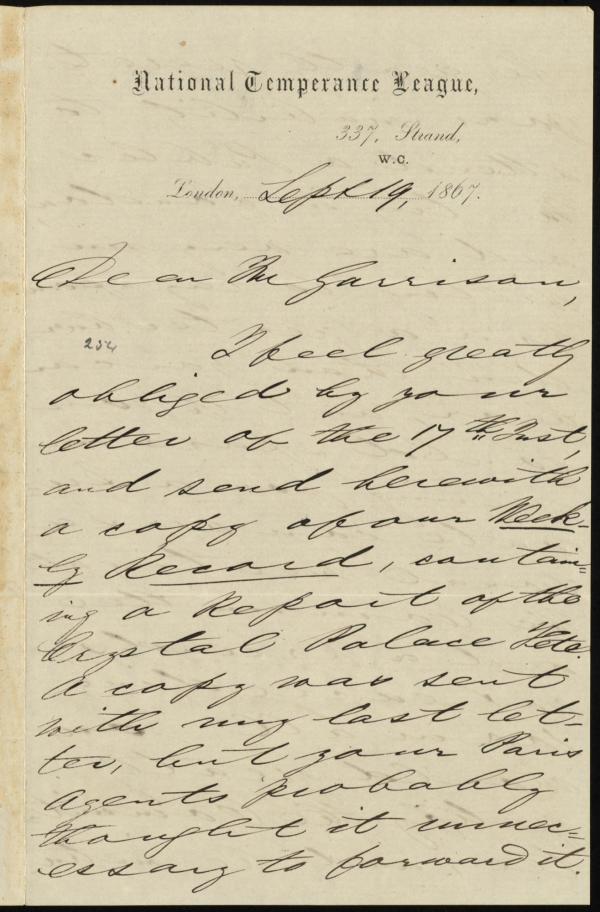 National Temperance League,
337, Strand,
W.C.
London, Sept 19, 1867.
Dear Mr Garrison,
254
I feel greatly
obliged by your
letter of the 17th Inst,
and send herewith
a copy of our Week-
ly Record, contain=
ing a Report of the
Crystal Palace Fete.
A copy was sent
with my last let-
ter, but your Paris
Agents probably
thought it unnec=
essary to forward it.